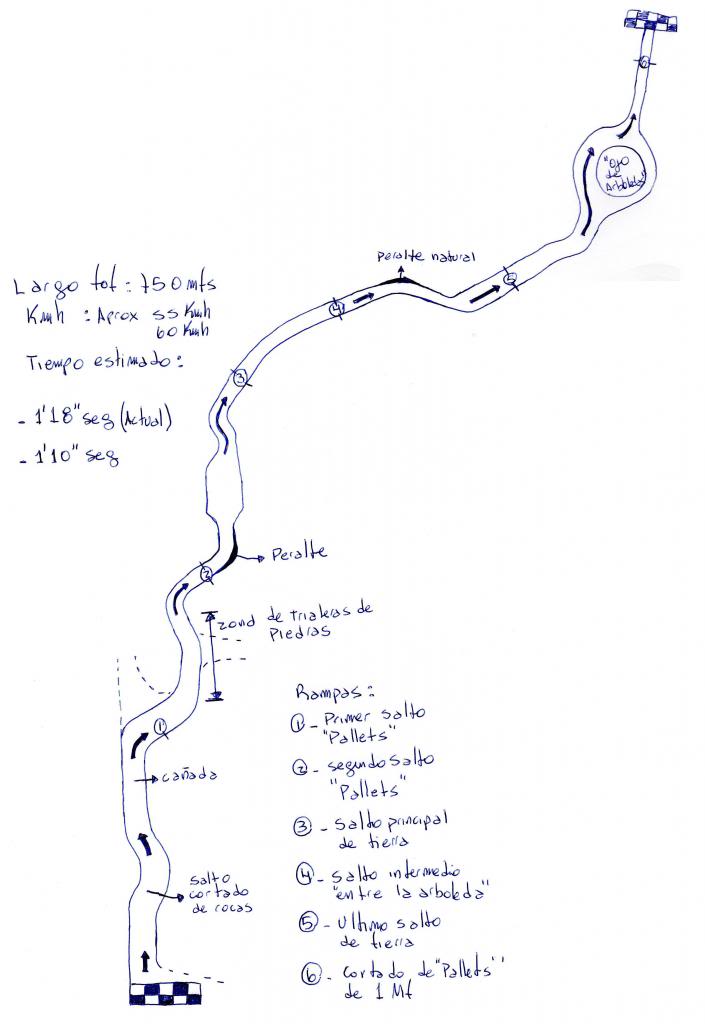 6
"Ojo
de
Arboleda"
Peralte natural
5
4
Largo tot : 750 mts
Kmh : Aprox 55 Kmh
60 Kmh
Tiempo estimado :
- 1'18" seg (Actual)
- 1'10" seg
3
Peralte
2
zona de trialeras de
Piedras
1
cañada
salto
cortado
de rocas
Rampas :
1 - Primer salto
"Pallets"
2 - segundo salto
"Pallets"
3 - salto principal
de tierra
4 - salto intermedio
"entre la arboleda"
5 - Ultimo salto
de tierra
6 - cortado de "Pallets"
de 1 Mt